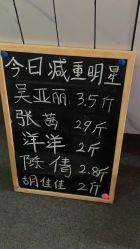 今日减重明星
吴亚丽 3.5斤
张茜 2.9斤
洋洋 2斤
陈倩 2.8斤
胡佳佳 2斤